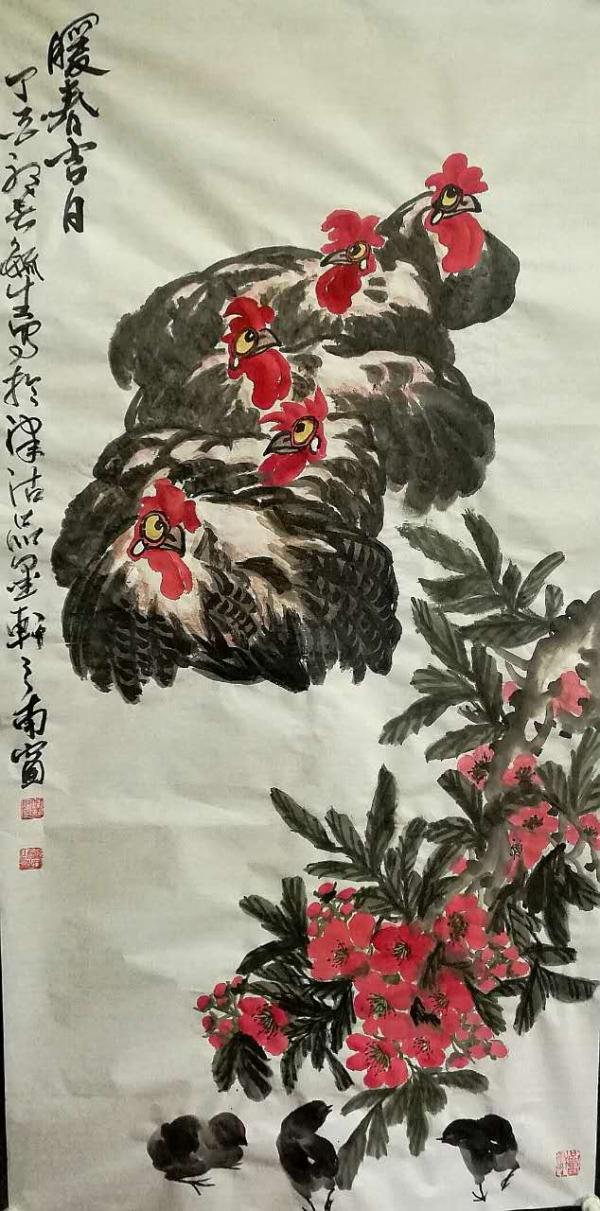 暖春吉日
丁酉初春毓生写於津沽品墨轩之南窗